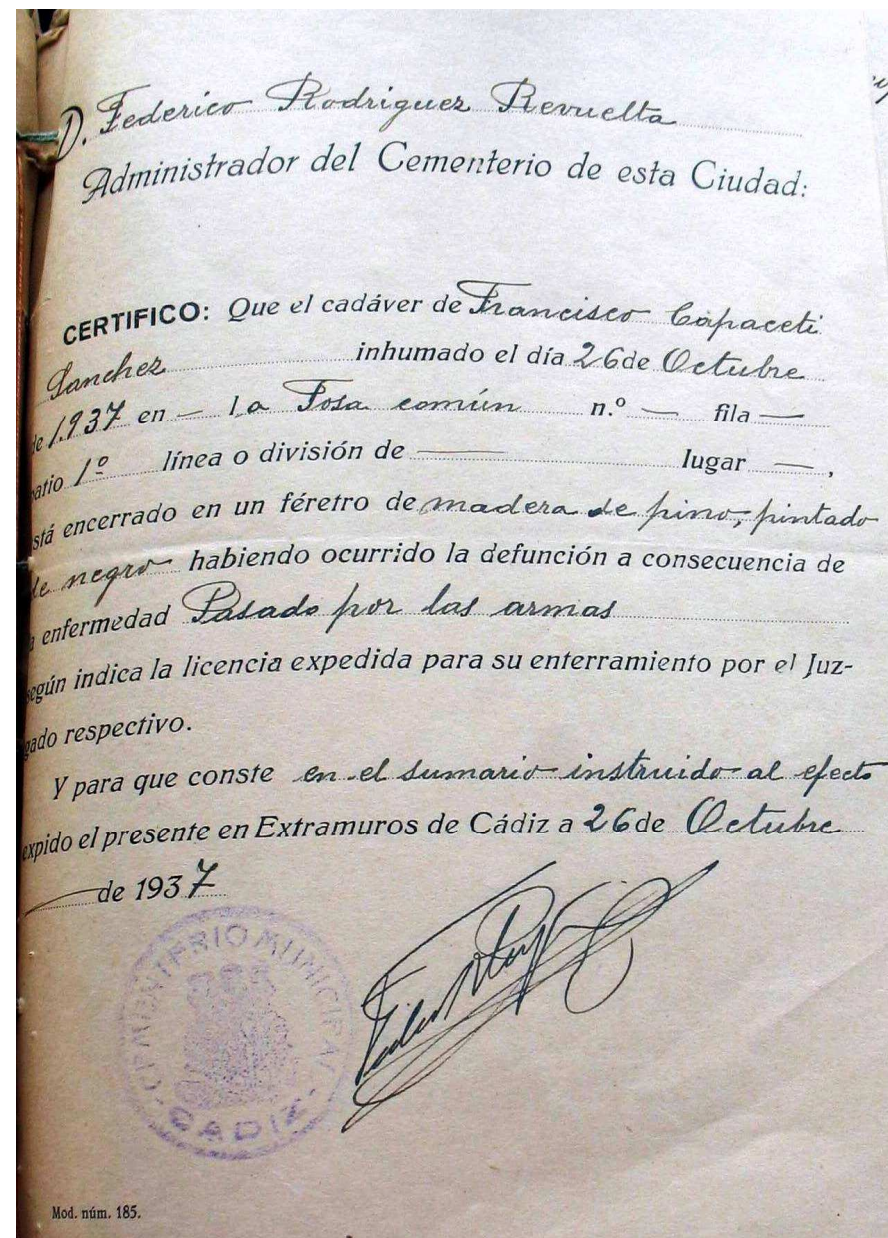 D. Federico Rodriguez Revuelta
Administrador del Cementerio de esta Ciudad:
CERTIFICO: Que el cadáver de Francisco Capaceti
Sanchez inhumado el día 26 de Octubre
de 1.937 en — la Fosa común n.º — fila —
patio 1º línea o división de — lugar —,
está encerrado en un féretro de madera de pino, pintado
de negro habiendo ocurrido la defunción a consecuencia de
la enfermedad Pasado por las armas
según indica la licencia expedida para su enterramiento por el Juz-
gado respectivo.
Y para que conste en el sumario instruido al efecto
expido el presente en Extramuros de Cádiz a 26 de Octubre
— de 1937
CEMENTERIO MUNICIPAL
- CADIZ -
Mod. núm. 185.